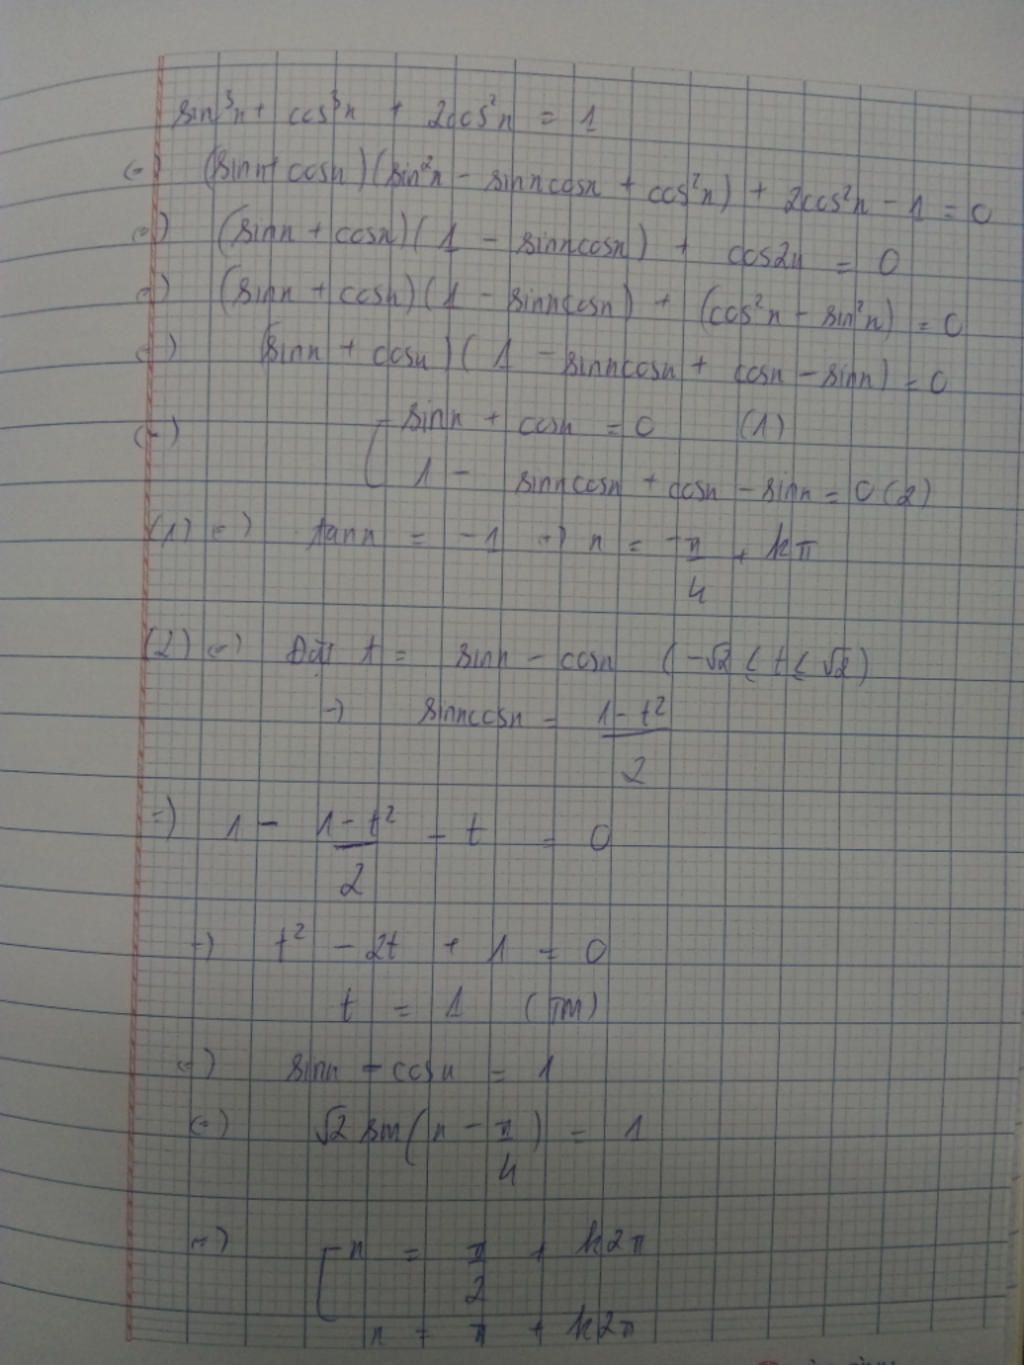 sin³x + cos³x + 2cos²x = 1
(=) (sinx + cosx)(sin²x - sinxcosx + cos²x) + 2cos²x - 1 = 0
(=) (sinx + cosx)(1 - sinxcosx) + cos2x = 0
(=) (sinx + cosx)(1 - sinxcosx) + (cos²x - sin²x) = 0
(=) (sinx + cosx)(1 - sinxcosx + cosx - sinx) = 0
(=) [ sinx + cosx = 0 (1)
1 - sinxcosx + cosx - sinx = 0 (2)
(1) (=) tanx = -1 =) x = -π/4 + kπ
(2) (=) Đặt t = sinx - cosx (-√2 ≤ t ≤ √2)
=) sinxcosx = (1 - t²)/2
=) 1 - (1 - t²)/2 - t = 0
=) t² - 2t + 1 = 0
t = 1 (TM)
(=) sinx - cosx = 1
(=) √2 sin(x - π/4) = 1
(=) [ x = π/2 + k2π
x = π + k2π